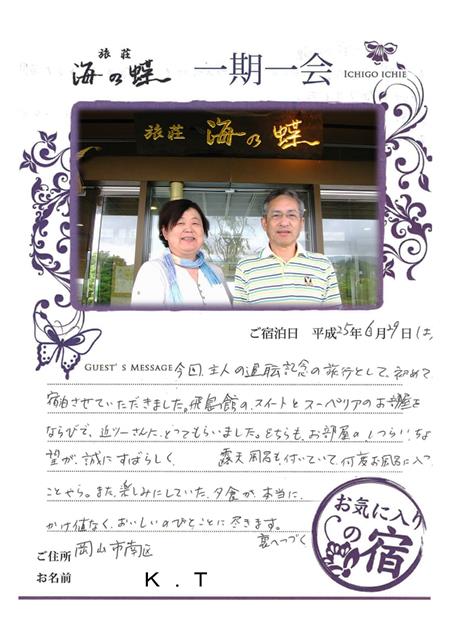 旅荘
海の蝶
一期一会
ICHIGO ICHIE
旅荘 海の蝶
ご宿泊日 平成25年6月29日(土)
GUEST'S MESSAGE 今回、主人の退職記念の旅行として、初めて
宿泊させていただきました。飛島館の、スイートとスーペリアのお部屋を
ならびで、近ツーさんに、とってもらいました。どちらも、お部屋のしつらい、ち
望が、誠にすばらしく 露天風呂も付いていて、何度お風呂に入っ
ことやら。また、楽しみにしていた、夕食が、本当に、
かけ値なく、おいしいのひとことに尽きます。
裏へつづく
ご住所 岡山市南区
お名前 K.T
お気に入り
の宿